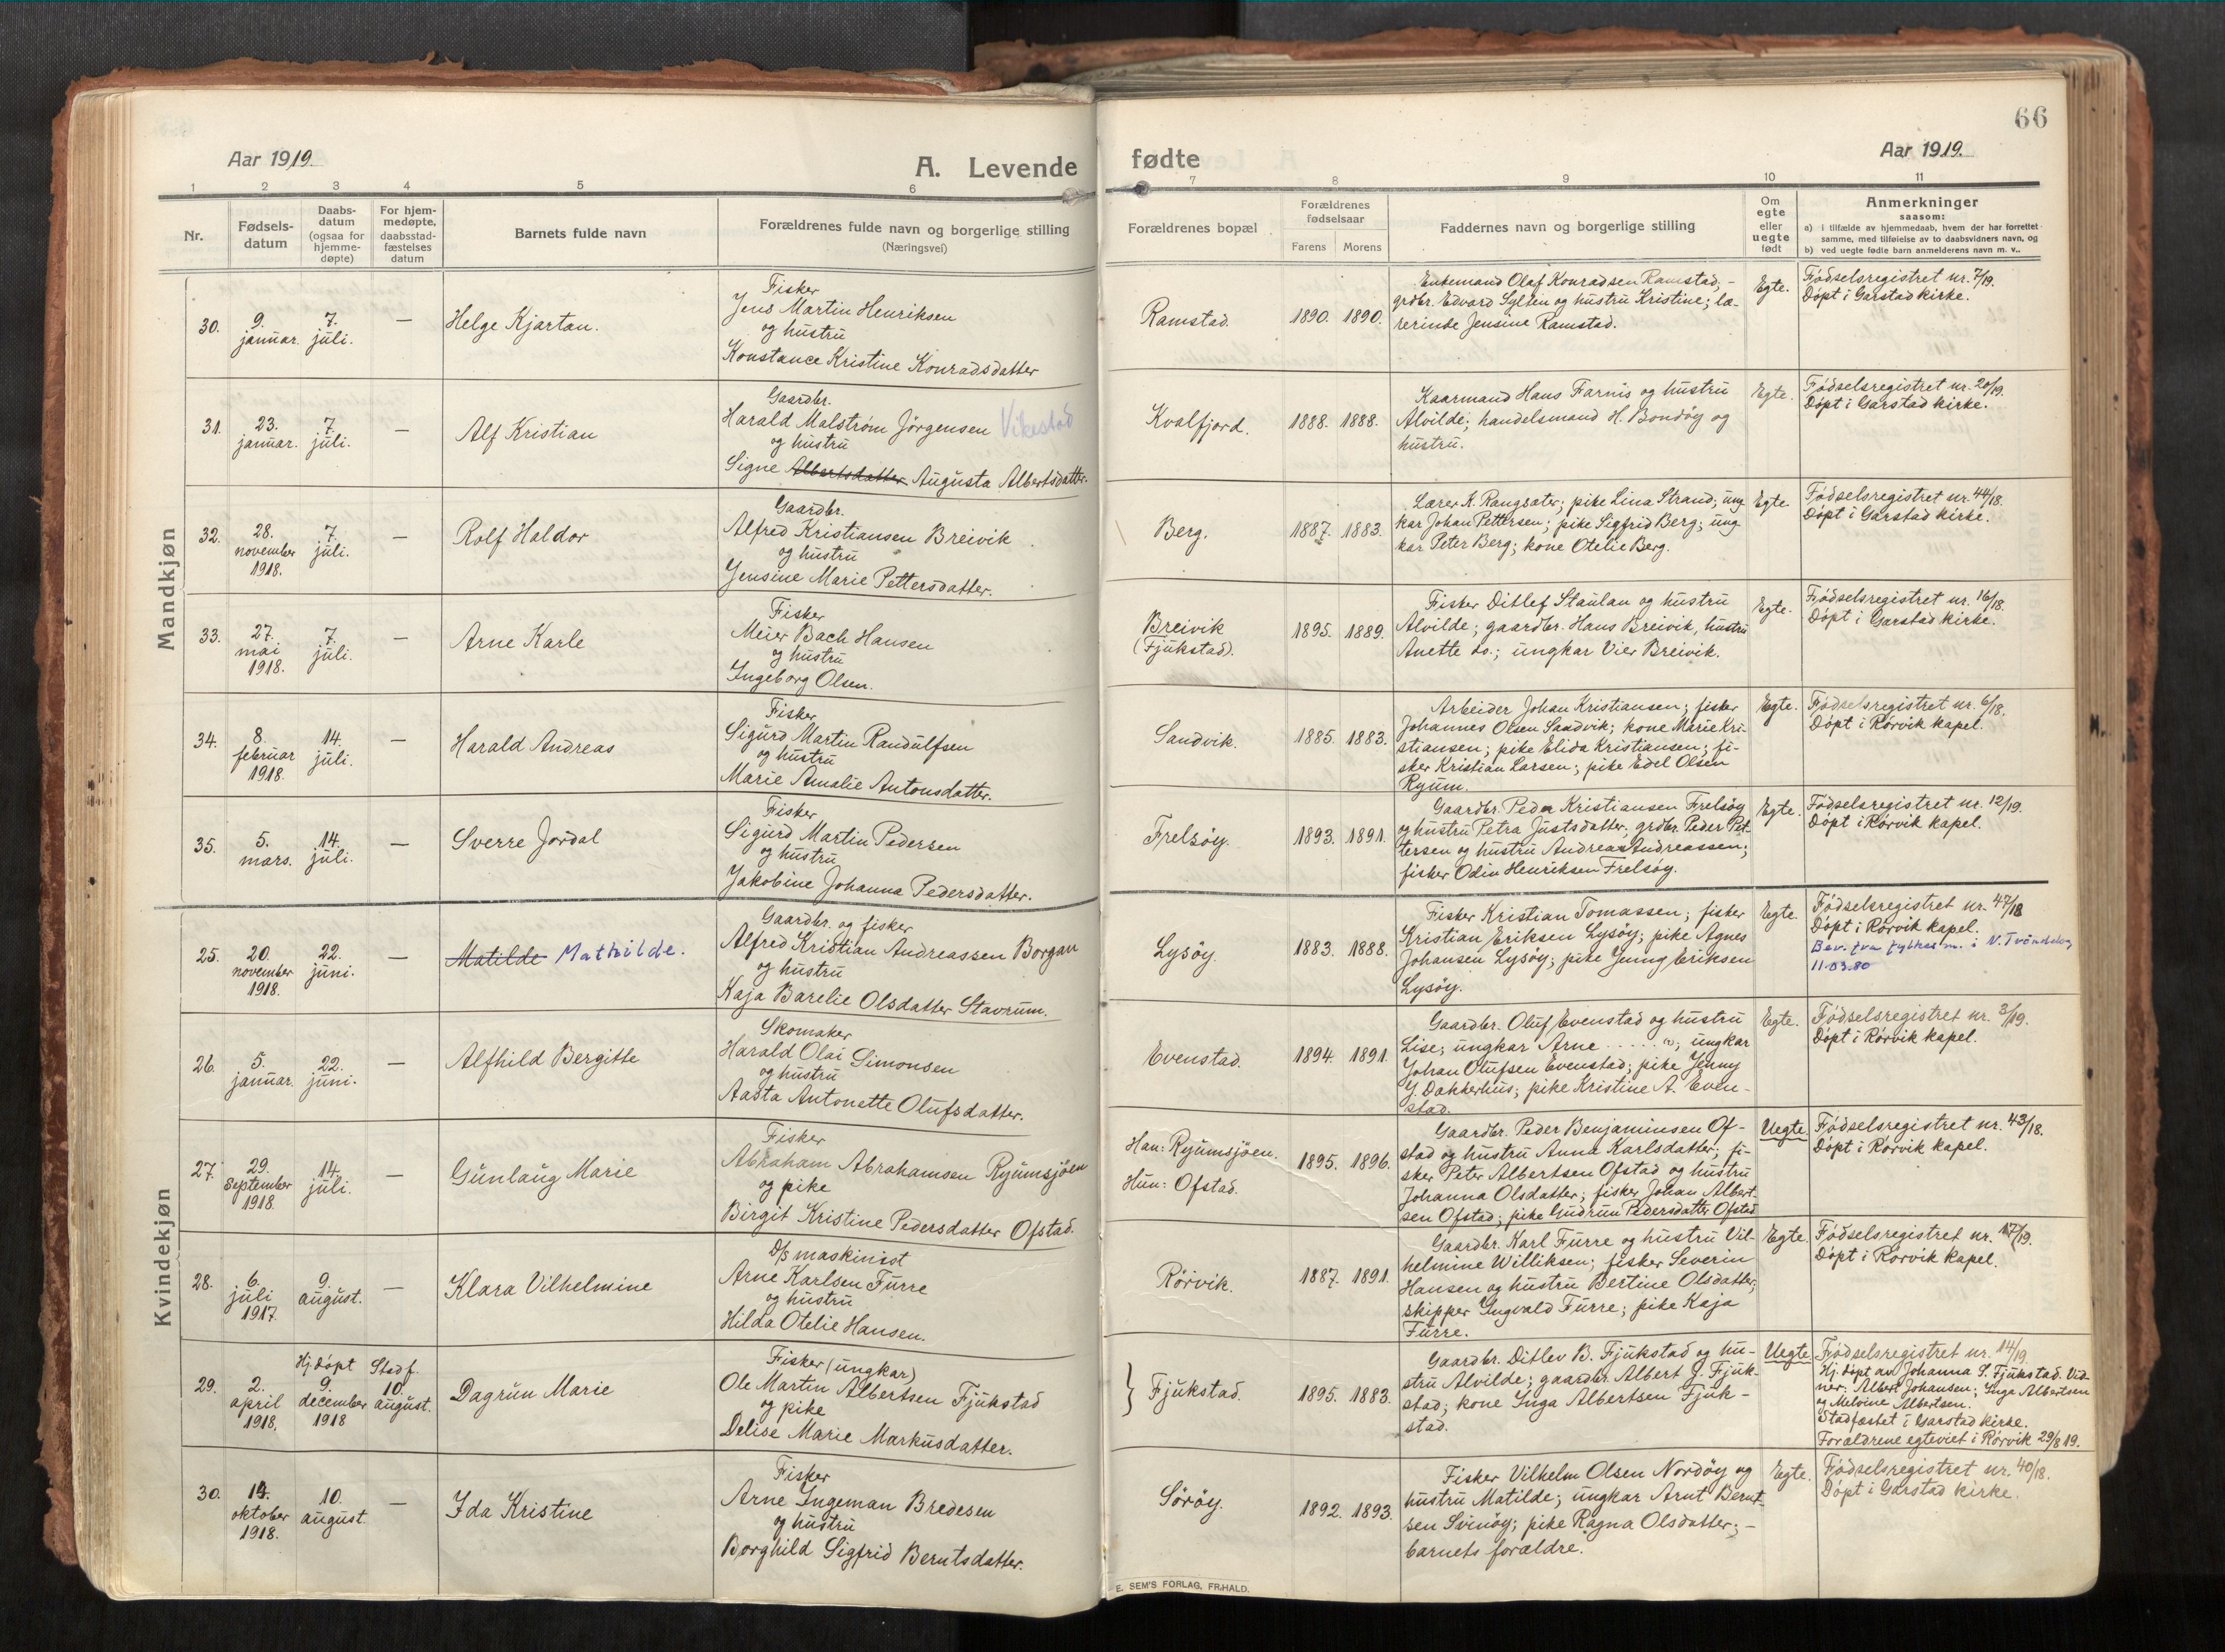 66
Aar 1919.
A. Levende
fødte
Aar 1919.
1 2 3 4 5 6
7 8 9 10 11
Nr.
Fødsels-
datum
Daabs-
datum
(ogsaa for
hjemme-
døpte)
For hjem-
medøpte,
daabsstad-
fæstelses
datum
Barnets fulde navn
Forældrenes fulde navn og borgerlige stilling
(Næringsvei)
Forældrenes bopæl
Forældrenes
fødselsaar
Farens Morens
Faddernes navn og borgerlige stilling
Om
egte
eller
uegte
født
Anmerkninger
saasom:
a) i tilfælde av hjemmedaab, hvem der har forrettet
samme, med tilføielse av to daabsvidners navn, og
b) ved uegte fødte barn anmelderens navn m. v..
Mandkjøn
30.
9.
januar.
7.
juli.
—
Helge Kjartan.
Fisker
Jens Martin Henriksen
og hustru
Konstance Kristine Konradsdatter
Ramstad.
1890. 1890.
Enkemand Olaf Konradsen Ramstad, -
grdbr. Edvard Sylten og hustru Kristine; læ-
rerinde Jensine Ramstad.
Egte.
Fødselsregistret nr. 7/19.
Døpt i Garstad kirke.
31.
23.
januar.
7.
juli.
—
Alf Kristian
Gaardbr.
Harald Malstrøm Jørgensen Vikestad
og hustru
Signe Albertsdatter Augusta Albertsdatter.
Kvalfjord.
1888. 1888.
Kaarmand Hans Farnis og hustru
Alvilde; handelsmand H. Bondøy og
hustru.
Egte.
Fødselsregistret nr. 20/19.
Døpt i Garstad kirke.
32.
28.
november
1918.
7.
juli.
—
Rolf Haldor
Gaardbr.
Alfred Kristiansen Breivik
og hustru
Jensine Marie Pettersdatter.
Berg.
1887. 1883.
Lærer K. Rangsæter; pike Lina Strand; ung
kar Johan Pettersen; pike Sigfrid Berg; ung
kar Peter Berg; kone Otelie Berg.
Egte.
Fødselsregistret nr. 44/18.
Døpt i Garstad kirke.
33.
27.
mai
1918.
7.
juli.
—
Arne Karle
Fisker
Meier Bach Hansen
og hustru
Ingeborg Olsen.
Breivik
(Fjukstad).
1895. 1889.
Fisker Ditlef Staulan og hustru
Alvilde; gaardbr. Hans Breivik, hustru
Anette do.; ungkar Vier Breivik.
Egte.
Fødselsregistret nr. 16/18.
Døpt i Garstad kirke.
34.
8.
februar
1918.
14.
juli.
—
Harald Andreas
Fisker
Sigurd Martin Randulfsen
og hustru
Marie Amalie Antonsdatter.
Sandvik.
1885. 1883.
Arbeider Johan Kristiansen; fisker
Johannes Olsen Sandvik; kone Marie Kri-
stiansen; pike Elida Kristiansen; fi-
sker Kristian Larsen; pike Edel Olsen
Ryum.
Egte.
Fødselsregistret nr. 6/18.
Døpt i Rørvik kapel.
35.
5.
mars.
14.
juli.
—
Sverre Jordal
Fisker
Sigurd Martin Pedersen
og hustru
Jakobine Johanna Pedersdatter.
Frelsøy.
1893. 1891.
Gaardbr. Peder Kristiansen Frelsøy
og hustru Petra Justsdatter; grdbr. Peder Pet-
tersen og hustru Andrea Andreassen;
fisker Odin Henriksen Frelsøy.
Egte.
Fødselsregistret nr. 12/19.
Døpt i Rørvik kapel.
Kvindekjøn
25.
20.
november
1918.
22.
juni.
—
Matilde Mathilde.
Gaardbr. og fisker
Alfred Kristian Andreassen Borgan
og hustru
Kaja Barelie Olsdatter Stavrum.
Lysøy.
1883. 1888.
Fisker Kristian Tomassen; fisker
Kristian Eriksen Lysøy; pike Agnes
Johansen Lysøy; pike Jenny Eriksen
Lysøy.
Egte.
Fødselsregistret nr. 47/18
Døpt i Rørvik kapel.
Bev. fra fylkesm. i N. Trøndelag
11.03.80
26.
5.
januar.
22.
juni.
—
Alfhild Bergitte
Skomaker
Harald Olai Simonsen
og hustru
Aasta Antonette Olufsdatter.
Evenstad.
1894. 1891.
Gaardbr. Oluf Evenstad og hustru
Lise; ungkar Arne ..... ; ungkar
Johan Olufsen Evenstad; pike Jenny
J. Dakkerhus; pike Kristine A. Even-
stad.
Egte.
Fødselsregistret nr. 3/19.
Døpt i Rørvik kapel.
27.
29.
September
1918.
14.
juli.
—
Gunlaug Marie
Fisker
Abraham Abrahamsen Ryumsjøen
og pike
Birgit Kristine Pedersdatter Ofstad.
Han: Ryumsjøen.
Hun: Ofstad.
1895. 1896.
Gaardbr. Peder Benjaminsen Of-
stad og hustru Anna Karlsdatter; fi-
sker Peter Albertsen Ofstad og hustru
Johanna Olsdatter; fisker Johan Albert-
sen Ofstad; pike Gudrun Pedersdatter Ofstad
Uegte.
Fødselsregistret nr. 43/18.
Døpt i Rørvik kapel.
28.
6.
juli
1917.
9.
august.
—
Klara Vilhelmine
D/s maskinist
Arne Karlsen Furre
og hustru
Hilda Otelie Hansen.
Rørvik.
1887. 1891.
Gaardbr. Karl Furre og hustru Vil-
helmine Williksen; fisker Severin
Hansen og hustru Bertine Olsdatter;
skipper Ingvald Furre; pike Kaja
Furre.
Egte.
Fødselsregistret nr. 17/19.
Døpt i Rørvik kapel.
29.
2.
april
1918.
Hj. døpt
9.
december
1918
Stadf.
10.
august.
Dagrun Marie
Fisker (ungkar)
Ole Martin Albertsen Fjukstad
og pike
Delise Marie Markusdatter.
Fjukstad.
1895. 1883.
Gaardbr. Ditlev B. Fjukstad og hu-
stru Alvilde; gaardbr. Albert J. Fjuk-
stad; kone Inga Albertsen Fjuk-
stad.
Uegte
Fødselsregistret nr. 14/19.
Hj. døpt av Johanna S. Fjukstad. Vid-
ner: Albert Johansen; Inga Albertsen
og Melvine Albertsen.
Stadfæstet i Garstad kirke.
Forældrene egteviet i Rørvik 29/8 19.
30.
14.
oktober
1918.
10.
august
—
Ida Kristine
Fisker
Arne Ingeman Bredesen
og hustru
Borghild Sigfrid Berntsdatter.
Sørøy.
1892. 1893.
Fisker Vilhelm Olsen Nordøy og
hustru Matilde; ungkar Arnt Bernt-
sen Svinøy; pike Ragna Olsdatter; -
barnets forældre.
Egte.
Fødselsregistret nr. 40/18.
Døpt i Garstad kirke.
E. SEM'S FORLAG, FR.HALD.